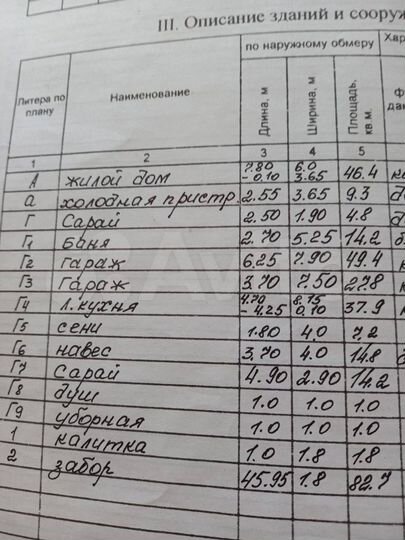 III. Описание зданий и сооруж
по наружному обмеру Хар
Литера по плану Наименование Длина, м Ширина, м Площадь, кв м.
1 2 3 4 5
7.80 6.0
А жилой дом - 0,10 3.65 46.4
а холодная пристр. 2.55 3.65 9.3
Г Сарай 2.50 1.90 4.8
Г1 баня 2.70 5.25 14.2
Г2 гараж 6.25 7.90 49.4
Г3 Гараж 3,70 7.50 27.8
4.70 8.15
Г4 л.кухня - 4.25 0,10 37.9
Г5 сени 1.80 4.0 7.2
Г6 навес 3,70 4.0 14.8
Г7 Сарай 4.90 2.90 14.2
Г8 душ 1.0 1.0 1.0
Г9 уборная 1.0 1.0 1.0
1 калитка 1.0 1.8 1.8
2 забор 45.95 1.8 82.7